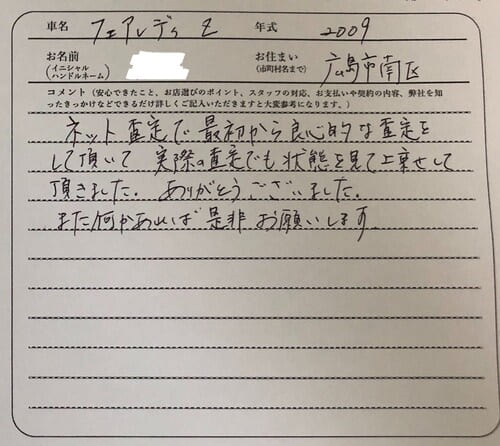 車名 フェアレディ Z 年式 2009
お名前 お住まい 広島市南区
(イニシャル (市町村名まで)
ハンドルネーム)
コメント(安心できたこと、お店選びのポイント、スタッフの対応、お支払いや契約の内容、弊社を知
ったきっかけなどできるだけ詳しくご記入いただきますと大変参考になります。)
ネット査定で最初から良心的な査定を
して頂いて 実際の査定でも状態を見て上乗せして
頂きました. ありがとうございました.
また何かあれば 是非 お願いします